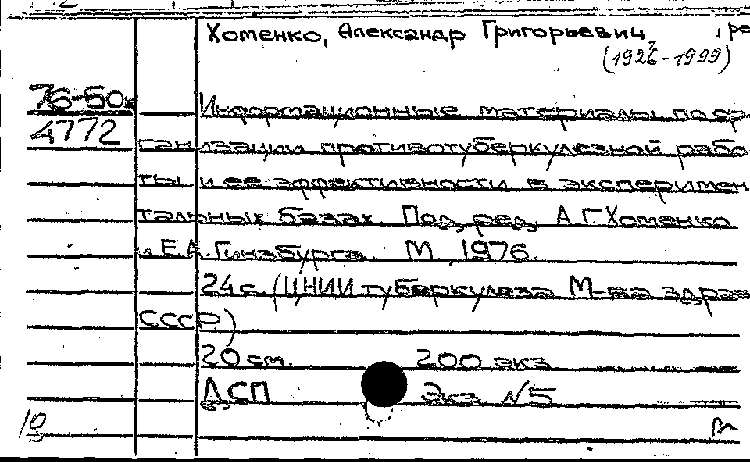 Хоменко, Александр Григорьевич, ре
(1926-1999)
76-50
4772
Информационные материалы по ор-
ганизации противотуберкулезной рабо-
ты и ее эффективности в эксперимен-
тальных базах. Под ред. А.Г.Хоменко
и Е.А. Гинзбурга. М., 1976.
24 с. (ЦНИИ туберкулеза М-ва здрав
СССР)
20 см. 200 экз.
ДСП Экз. №5
10